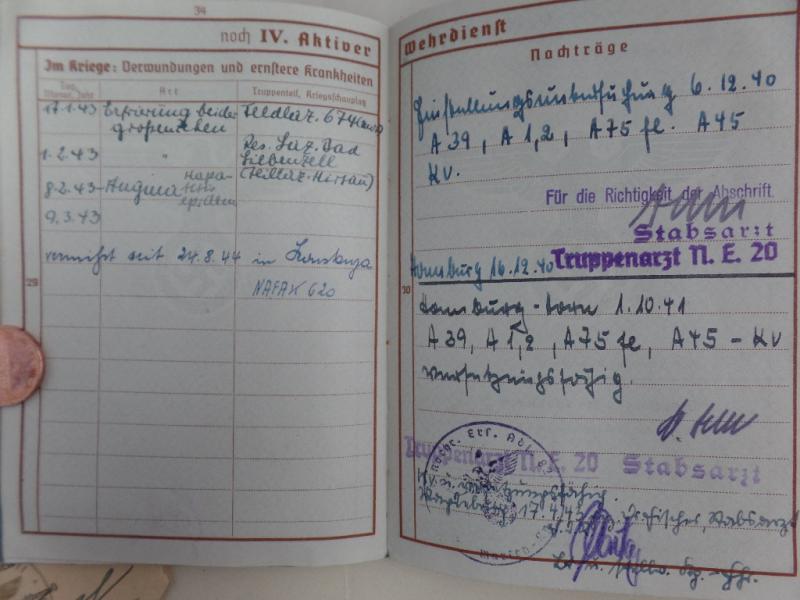 34
noch IV. Aktiver
Im Kriege: Verwundungen und ernstere Krankheiten
Tag, Monat, Jahr
Art
Truppenteil, Kriegsschauplatz
17.1.43 Erfrierung beider Feldlaz. 674
großenzehen
Res. Laz. Bad
1.2.43 "
Liebenzell
(Teillaz. Hirsau)
8.2.43- Angina
9.3.43
vermißt seit 24.8.44 in Konstanza
NAFAK 620
29
Wehrdienst
Nachträge
Einstellungsuntersuchung 6.12.40
A 39, A 1,2, A 75 fl. A 45
Kv.
Für die Richtigkeit der Abschrift.
Stabsarzt
Hamburg 16.12.40 Truppenarzt N. E. 20
30
Hamburg-Horn 1.10.41
A 39, A 1,2, A 75 fl, A 45 - Kv
versetzungsfähig.
Truppenarzt N. E. 20 Stabsarzt
Nachr. Ers. Abt.
Kv. u.
17.4.42
Stabsarzt